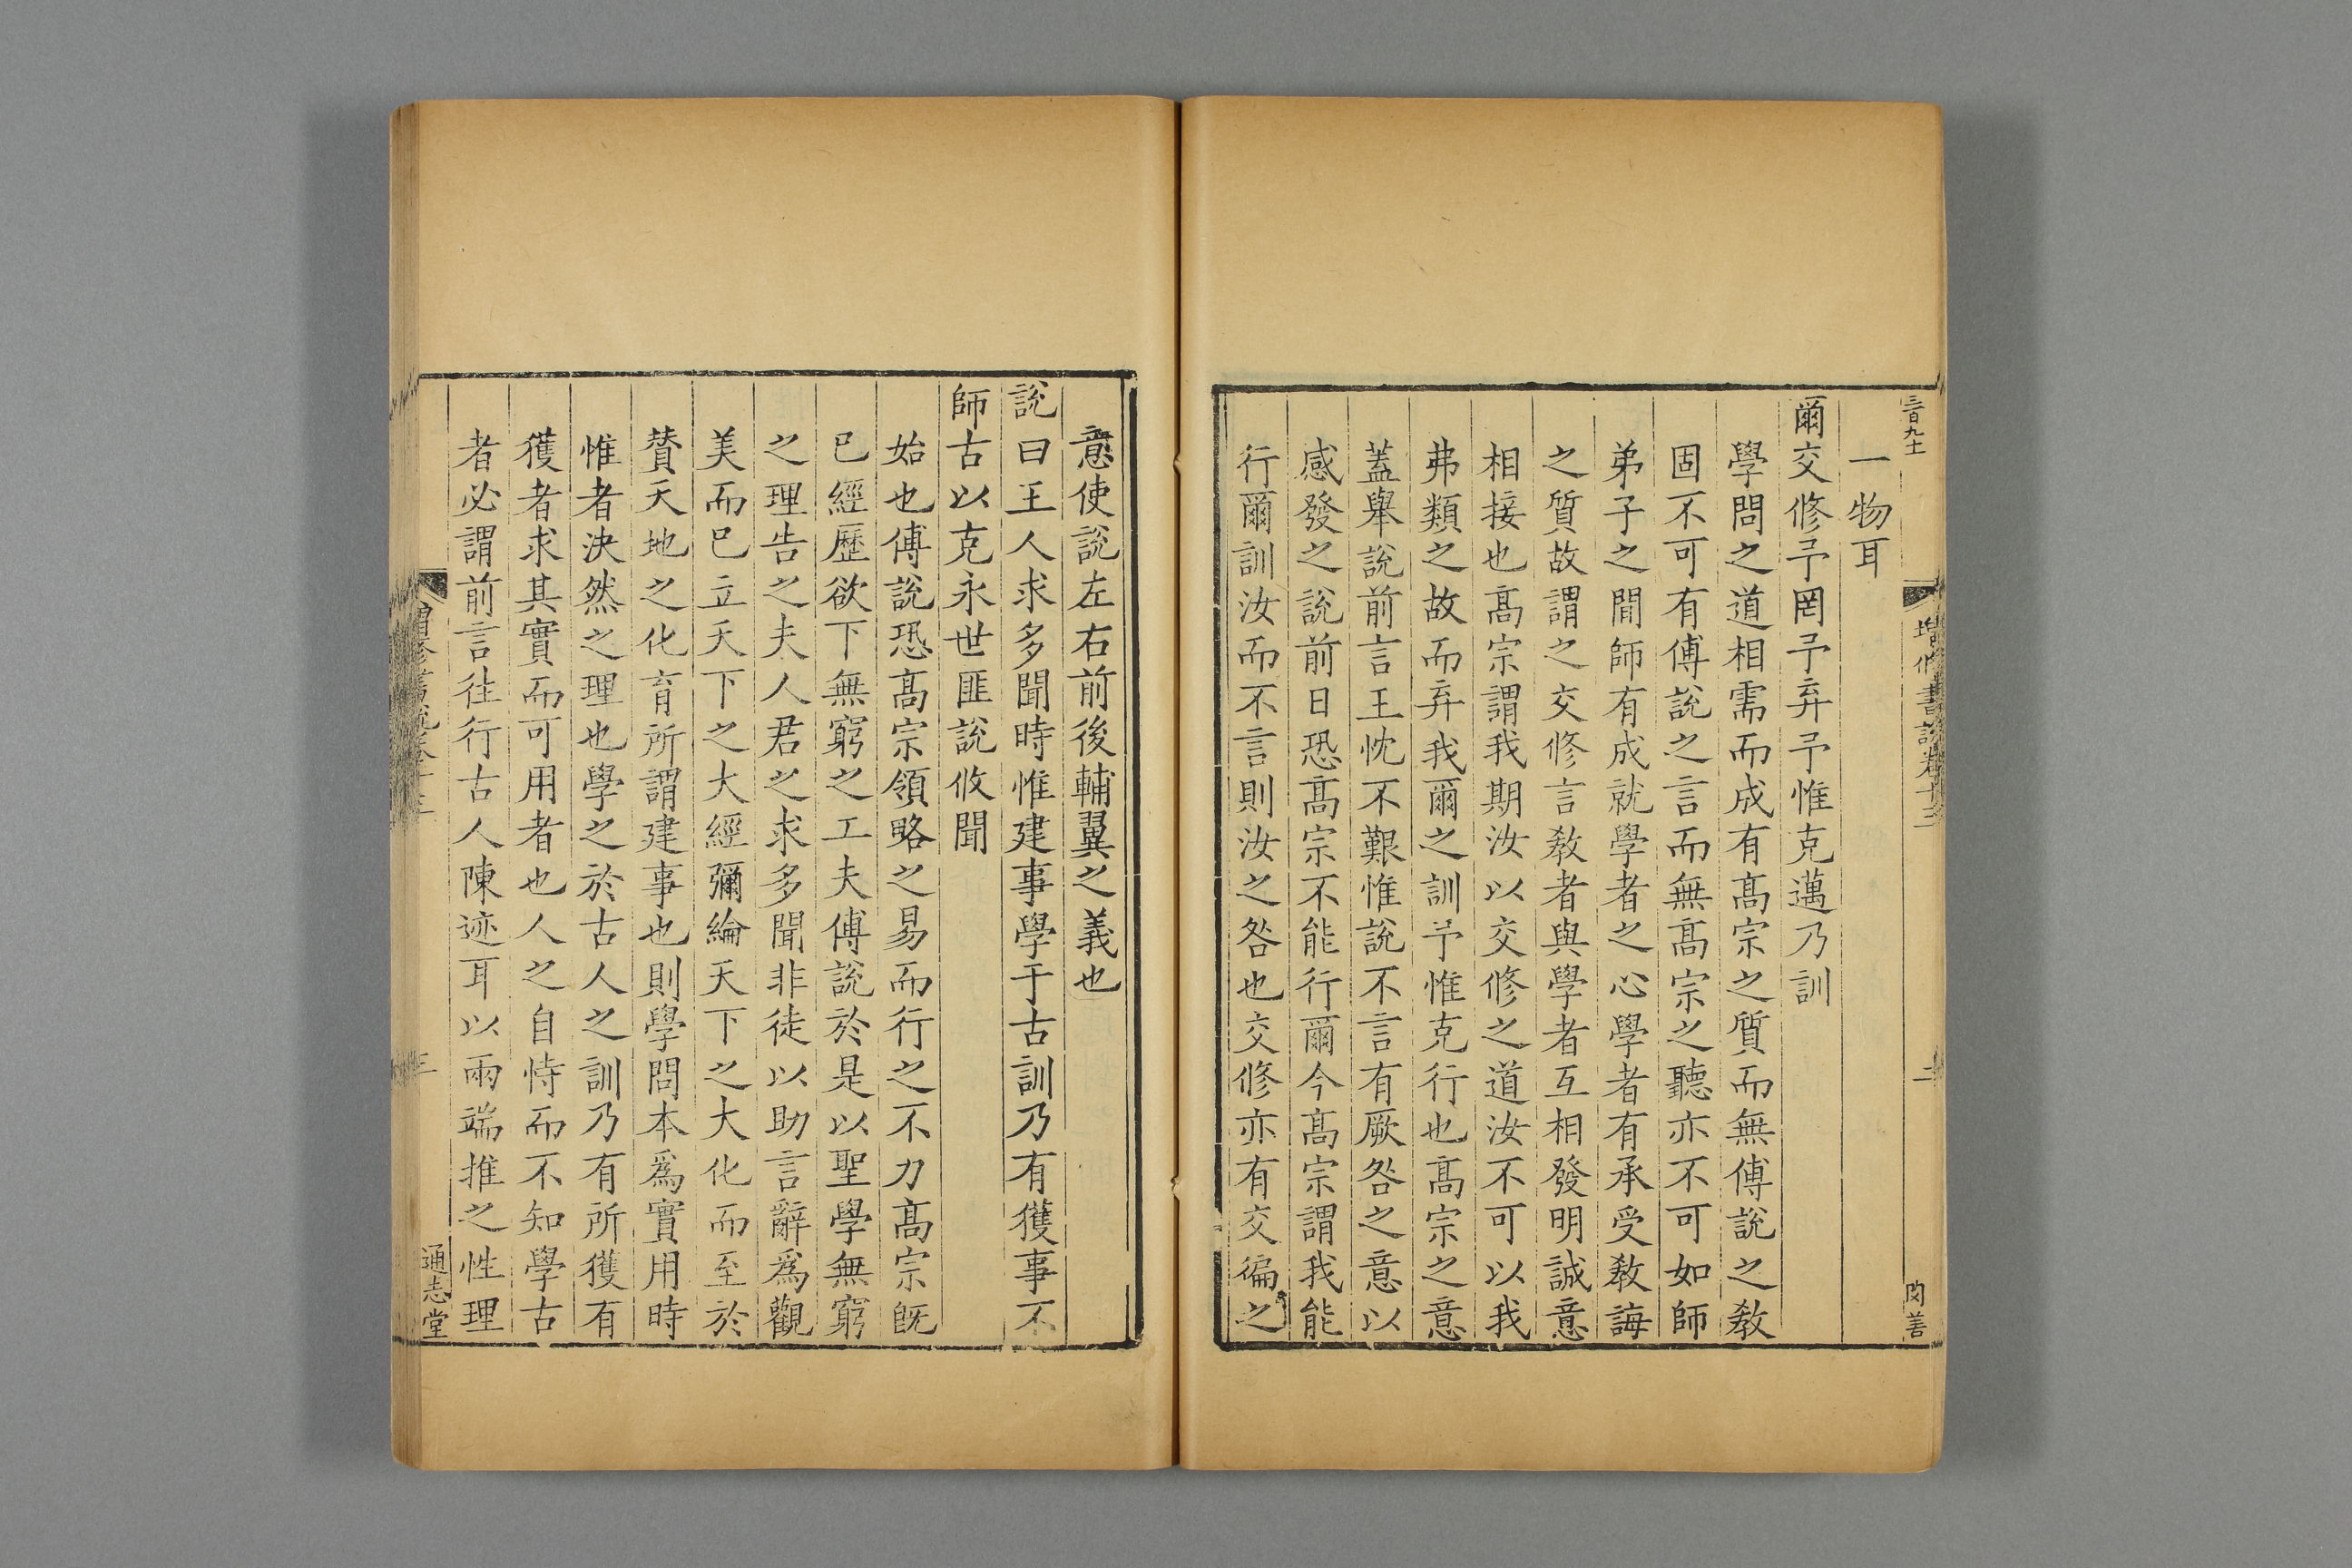 三百九十
增修書說卷十三
二
閔善
一物耳
爾交修予罔予弃予惟克邁乃訓
學問之道相需而成有髙宗之質而無傅說之敎
固不可有傅說之言而無髙宗之聽亦不可如師
弟子之間師有成就學者之心學者有承受敎誨
之質故謂之交修言敎者與學者互相發明誠意
相接也髙宗謂我期汝以交修之道汝不可以我
弗類之故而弃我爾之訓予惟克行也髙宗之意
蓋舉說前言王忱不艱惟說不言有厥咎之意以
感發之說前日恐髙宗不能行爾今髙宗謂我能
行爾訓汝而不言則汝之咎也交修亦有交徧之
意使說左右前後輔翼之義也
說曰王人求多聞時惟建事學于古訓乃有獲事不
師古以克永世匪說攸聞
始也傅說恐髙宗領略之易而行之不力髙宗旣
已經歷欲下無窮之工夫傅說於是以聖學無窮
之理告之夫人君之求多聞非徒以助言辭爲觀
美而已立天下之大經彌綸天下之大化而至於
贊天地之化育所謂建事也則學問本爲實用時
惟者決然之理也學之於古人之訓乃有所獲有
獲者求其實而可用者也人之自恃而不知學古
者必謂前言往行古人陳迹耳以兩端推之性理
增修書說卷十三
三
通志堂